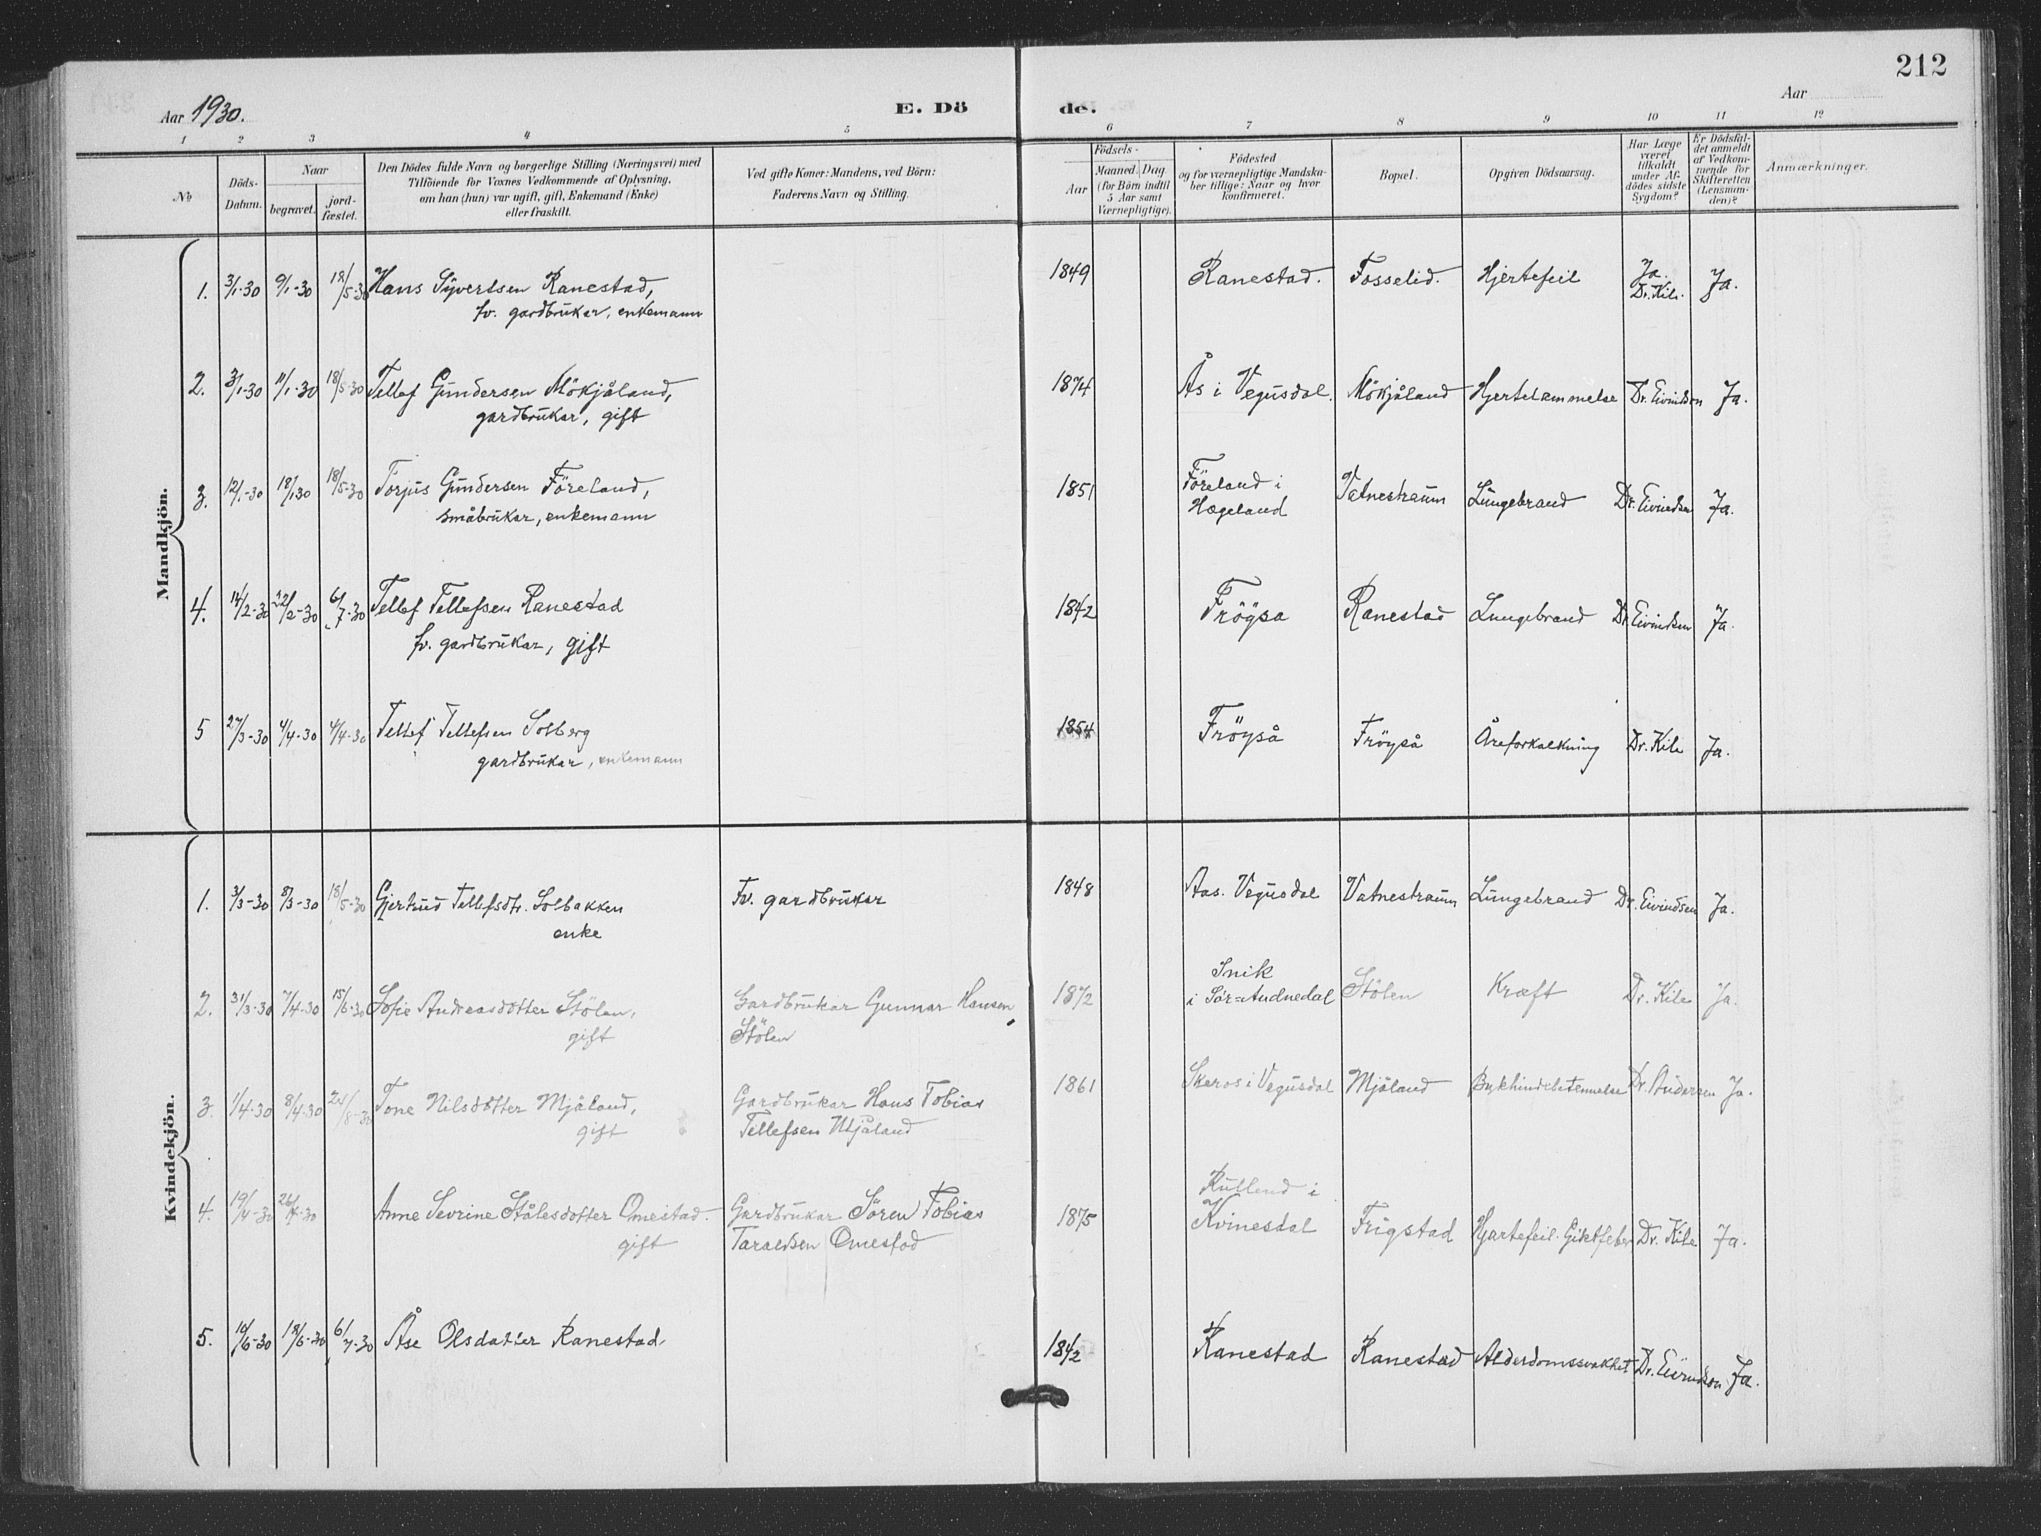 212
Aar 1930.
E. Dö
de.
Aar
1 2 3 4 5 6 7 8 9 10 11 12
No
Döds-Datum.
Naar
begravet.
jord-fæstet.
Den Dödes fulde Navn og borgerlige Stilling (Næringsvei) med
Tilföiende for Voxnes Vedkommende af Oplysning,
om han (hun) var ugift, gift, Enkemand (Enke)
eller fraskilt.
Ved gifte Koner: Mandens, ved Börn:
Faderens Navn og Stilling.
Födsels-
Aar
Maaned. Dag
(for Börn indtil
5 Aar samt
Værnepligtige).
Födested
og for værnepligtige Mandska-
ber tillige: Naar og hvor
konfirmeret.
Bopæl.
Opgiven Dödsaarsag.
Har Læge
været
tilkaldt
under Af-
dödes sidste
Sygdom?
Er Dödsfal-
det anmeldt
af Vedkom-
mende for
Skifteretten
(Lensman-
den)?
Anmærkninger.
Mandkjön.
1. 3/1-30 9/1-30 18/5-30 Hans Syvertsen Ranestad, 1849 Ranestad. Fosselid. Hjertefeil Ja. Dr. Kile. Ja.
fv. gardbrukar, enkemann
2. 3/1-30 11/1-30 18/5-30 Tellef Gundersen Mökjåland, 1874 Ås i Vegusdal. Mökjåland Hjertelammelse Dr. Eivindsen Ja.
gardbrukar, gift
3. 12/1-30 18/1 30 18/5-30 Torjus Gundersen Föreland, 1851 Föreland i Hægeland Vatnestraum Lungebrand Dr. Eivindsen Ja.
småbrukar, enkemann
4. 14/2-30 22/2-30 6/7-30 Tellef Tellefsen Ranestad 1842 Fröysa Ranestad Lungebrand Dr. Eivindsen Ja.
fv. gardbrukar, gift
5 27/3-30 4/4-30 4/4-30 Tellef Tellefsen Solberg 1854 Fröyså Fröyså Åreforkalkning Dr. Kile Ja.
gardbrukar, enkemann
Kvindekjön.
1. 3/3-30 8/3-30 18/5-30 Gjertrud Tellefsdtr. Solbakken Fv. gardbrukar 1848 Aas. Vegusdal Vatnestraum Lungebrand Dr. Eivindsen Ja.
enke
2. 31/3-30 7/4-30 15/6-30 Sofie Andreasdotter Stölen, Gardbrukar Gunnar Hansen 1872 Snik i Sör=Audnedal Stölen Kræft Dr. Kile Ja.
gift Stölen
3. 1/4-30 8/4-30 /8-30 Tone Nilsdotter Mjåland, Gardbrukar Hans Tobias 1861 Skeros i Vegusdal Mjåland Bukhindebetennelse Dr. Andersen Ja.
gift Tellefsen Mjåland
4. 19/4-30 26/4-30 Anne Sevrine Stålesdotter Omestad. Gardbrukar Sören Tobias 1875 i Kvinesdal Frigstad Hjartefeil. Giktfeber Dr. Kile Ja.
gift Taraldsen Omestad
5. /6-30 18/6-30 6/7-30 Åse Olsdatter Ranestad. 1842 Ranestad Ranestad Alderdomssvakhet Dr. Eivindson Ja.